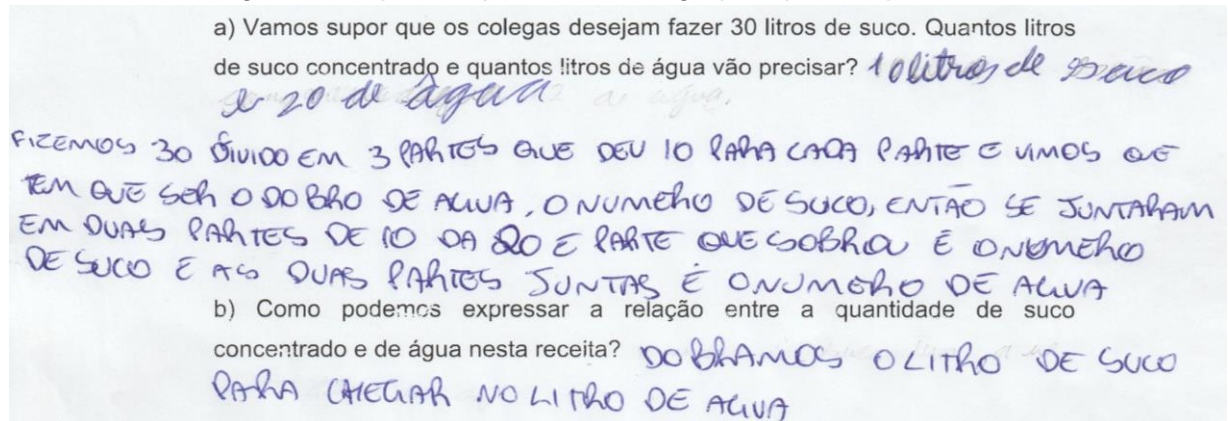 a) Vamos supor que os colegas desejam fazer 30 litros de suco. Quantos litros
de suco concentrado e quantos litros de água vão precisar? 10 litros de suco
e 20 de água
FIZEMOS 30 DIVIDO EM 3 PARTES QUE DEU 10 PARA CADA PARTE E VIMOS QUE
TEM QUE SER O DOBRO DE AGUA, O NUMERO DE SUCO, ENTÃO SE JUNTARAM
EM DUAS PARTES DE 10 DA 20 E PARTE QUE SOBROU É O NUMERO
DE SUCO E AS DUAS PARTES JUNTAS É O NUMERO DE AGUA
b) Como podemos expressar a relação entre a quantidade de suco
concentrado e de água nesta receita? DOBRAMOS O LITRO DE SUCO
PARA CHEGAR NO LITRO DE AGUA